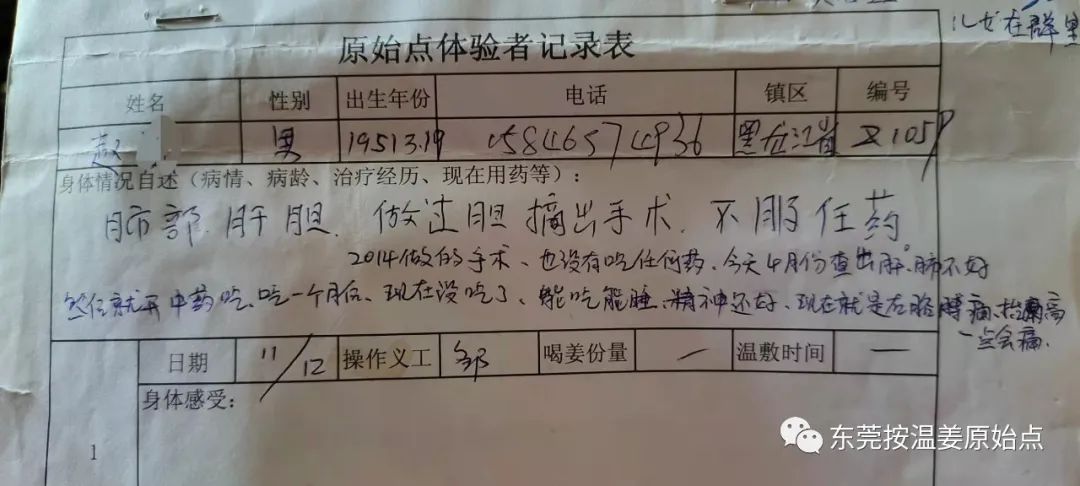 儿女在群里
原始点体验者记录表
姓名 性别 出生年份 电话 镇区 编号
赵 男 19513.19 15846574936 黑龙江省 1059
身体情况自述（病情、病龄、治疗经历、现在用药等）：
肺部.肝胆. 做过胆摘出手术. 不服任药
2014做的手术、也没有吃任何药、今天4月份查出肝.肺不好
然后就开中药吃、吃一个月后、现在没吃了、能吃能睡、精神还好、现在就是右胳膊痛、抬高
一点会痛.
日期 11/12 操作义工 邹 喝姜份量 一 温敷时间 一
身体感受：
1
东莞按温姜原始点